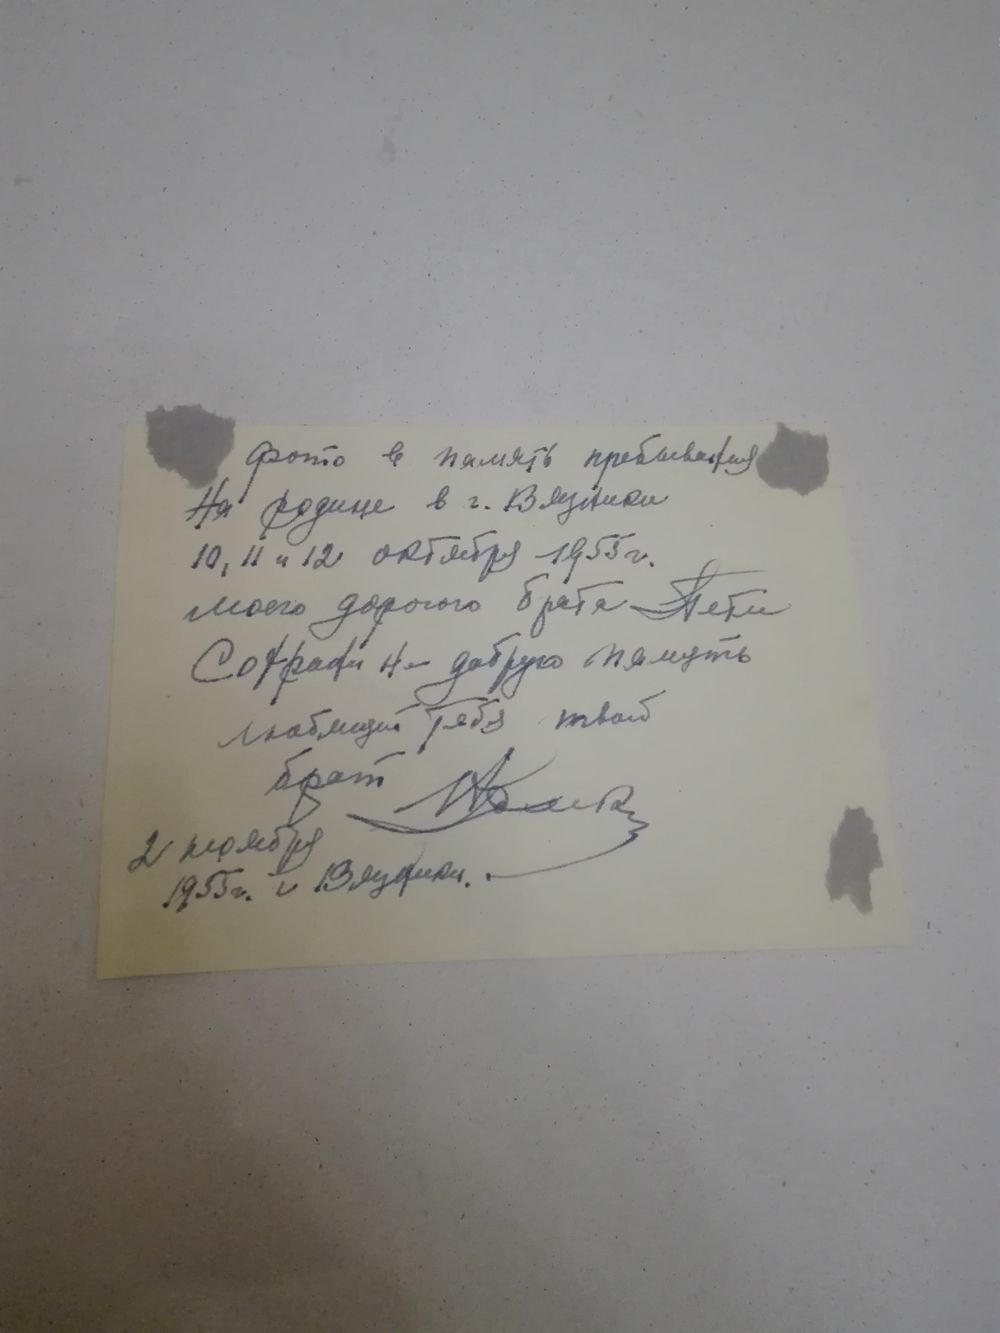 Фото в память пребывания
на родине в г. Вязники
10, 11 и 12 октября 1955 г.
моего дорогого брата Пети
Сохрани на добрую память
любящий тебя твой
брат
2 ноября
1955 г. г. Вязники.